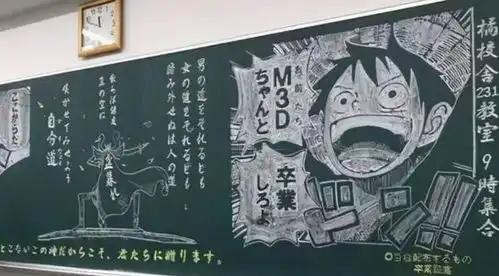 橘校舎231教室 9時集合
お前たち
M3D
ちゃんと
卒業
しろよ
◎3日配布するもの
卒業証書
男の道をそれるとも
女の道をそれるとも
踏み外せぬは人の道
散らば諸共
真の空に
咲かせてみせよう
自分道
どこないこの時だからこそ、君たちに贈ります。